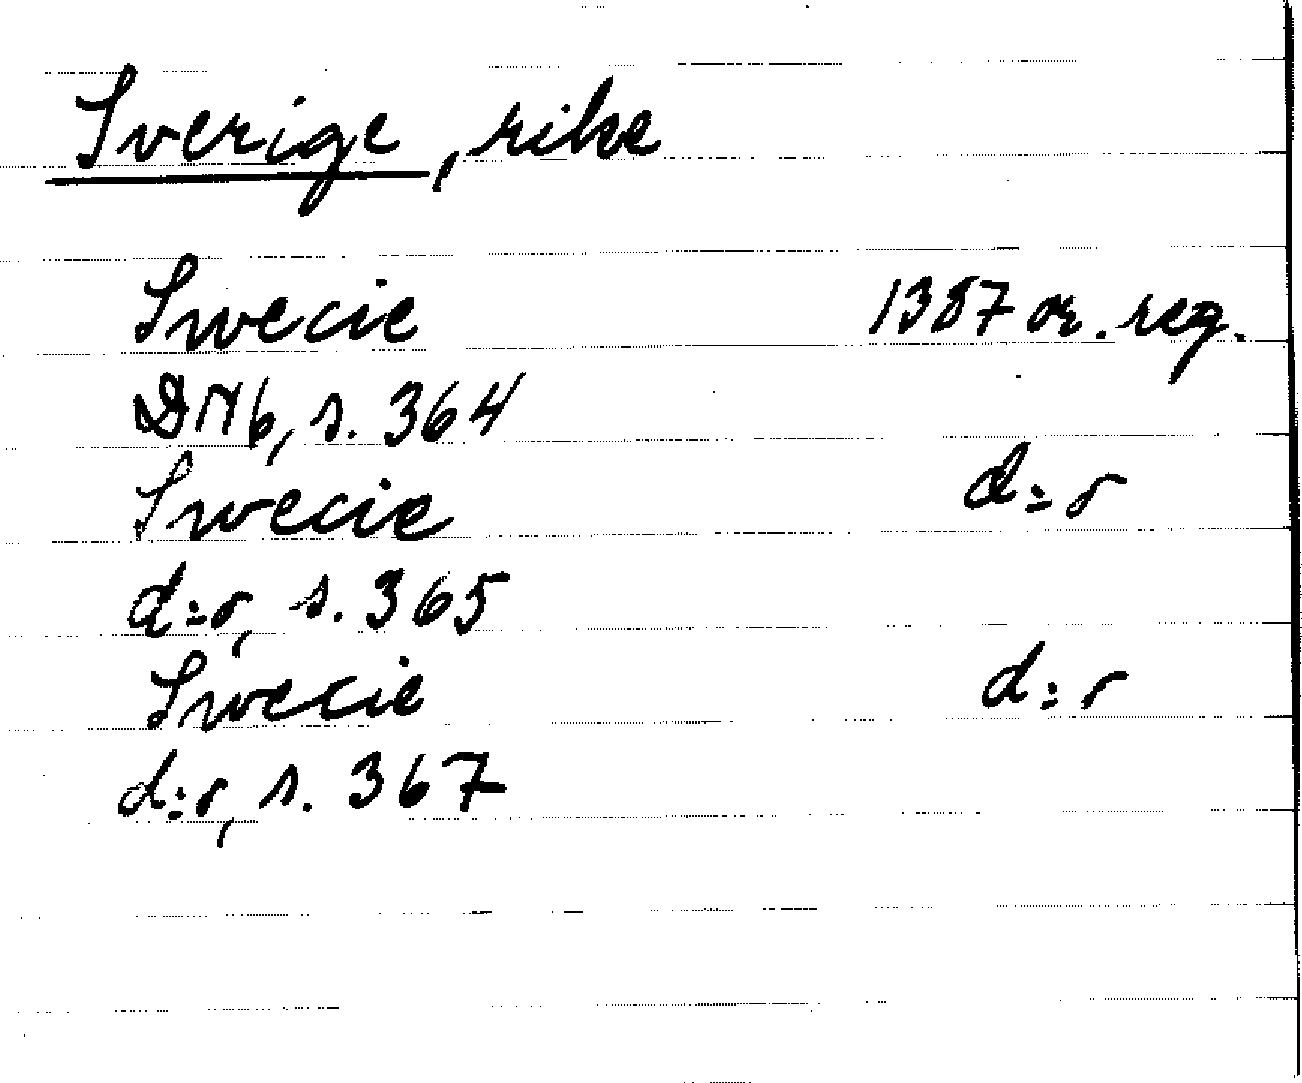 Sverige, rike
Swecie 1387 or. reg.
DN 6, s. 364
Swecie d:o
d:o, s. 365
Swecie d:o
d:o, s. 367